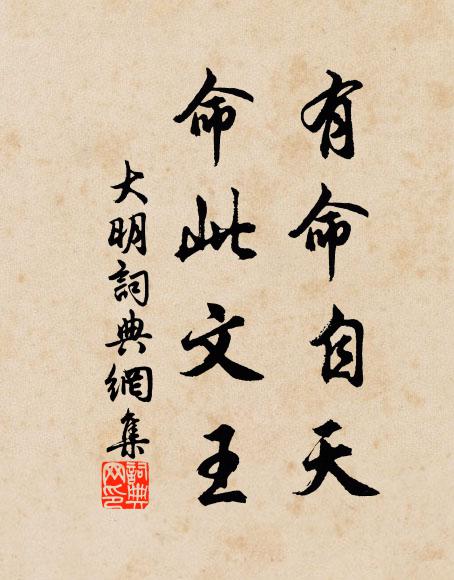 有命自天
命此文王
大明詞典網集
詞典网印